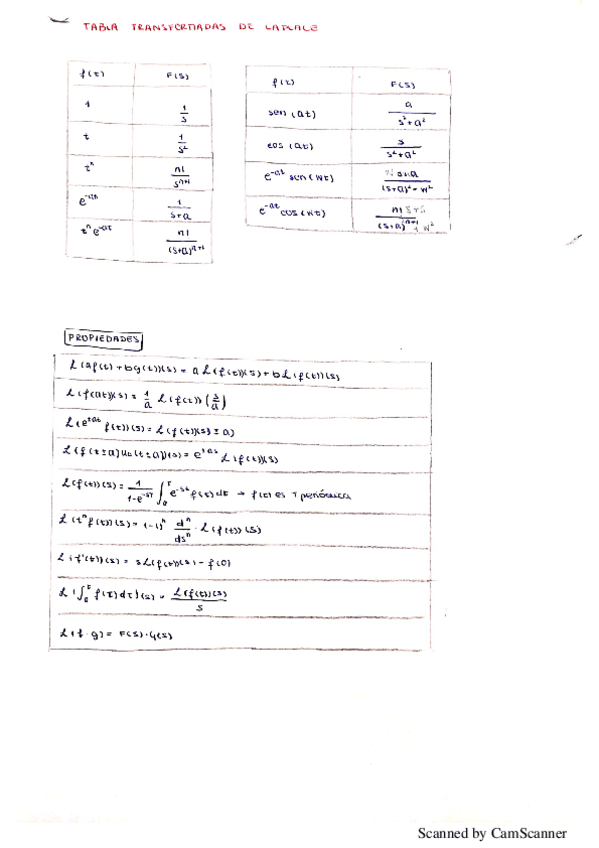 TABLA TRANSFORMADAS DE LAPLACE
f(t) F(s)
1 1/s
t 1/s²
tⁿ n!/sⁿ⁺¹
1/(s+a)
tⁿ e⁻ᵃᵗ n!/(s+a)ⁿ⁺¹
f(t) F(s)
sen(at) a/(s²+a²)
cos(at) s/(s²+a²)
e⁻ᵃᵗ sen(wt)
e⁻ᵃᵗ cos(wt)
PROPIEDADES
L(af(t)+bg(t))(s) = a L(f(t))(s) + b L(f(t))(s)
L(f(at))(s) = 1/a L(f(t))(s/a)
L(e^{±at} f(t))(s) = L(f(t))(s ± a)
L(f(t±a)
L(f(t))(s) = 1/(1-e^{-sT}) ∫₀ᵀ e^{-st} f(t)dt → f(t) es T periódica
L(tⁿ f(t))(s) = (-1)ⁿ dⁿ/dsⁿ · L(f(t))(s)
L(f'(t))(s) = sL(f(t))(s) - f(0)
L(∫₀ᵗ f(τ)dτ)(s) = L(f(t))(s)/s
L(f · g) = F(s)·G(s)
Scanned by CamScanner